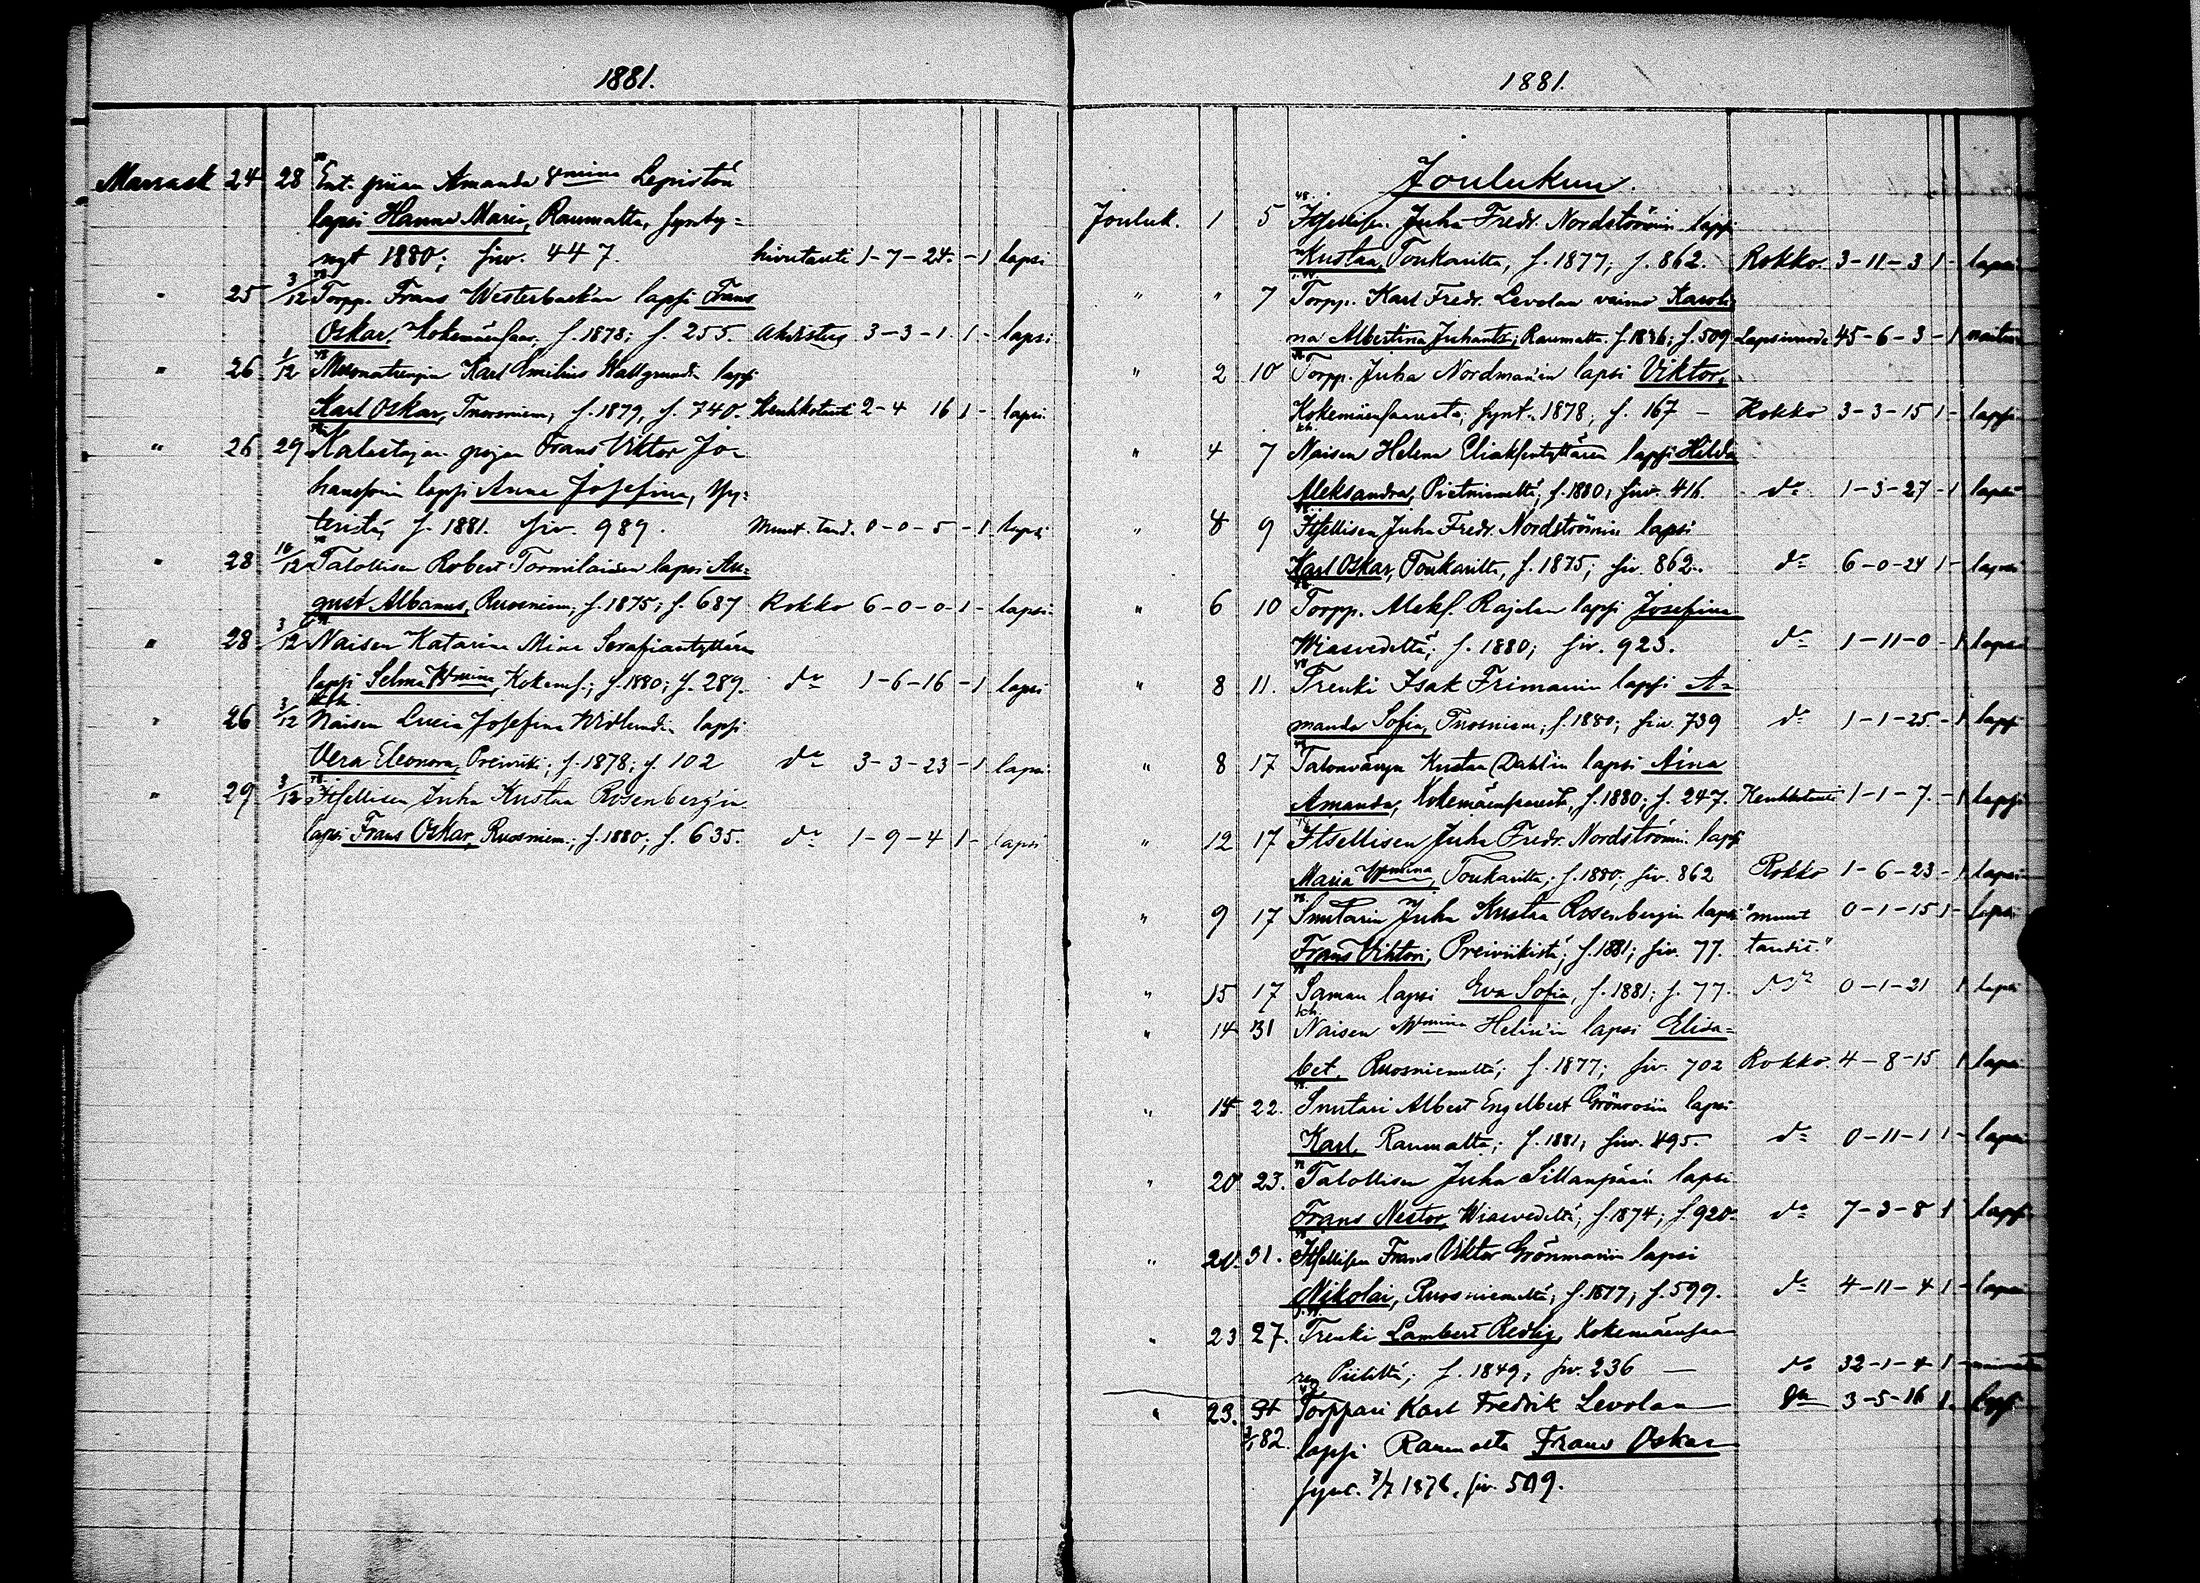 1881.
Marrask 24 28 Ent. piian Amanda Lepistön
lapsi Hanna Maria, Raumalta, synty-
nyt 1880; siv. 447. hivutauti 1-7-24. -1 lapsi
" 25 3/12 Torpp. Frans Westerbackan lapsi Frans
Oskar, Kokemäensaar, s. 1878; s. 255. 3-3-1. 1- lapsi
" 26 1/12 Karl Emilius Hallgrundin lapsi
Karl Oskar, s. 1879, s. 740. Keuhkotauti 2-4 16 1- lapsi
" 26 29 Kalastajan pojan Frans Viktor Jo-
hanssonin lapsi Anna Josefina, Yy-
teristä, s. 1881. siv. 989. Muut. taud. 0-0-5 -1 lapsi
" 28 10/12 Talollisen Robert Tormilaisen lapsi Au-
gust Albanus, Ruosniem; s. 1875; s. 687 Rokko 6-0-0 1- lapsi
" 28 3/12 Naisen Katarina Mina Serafiantyttären
lapsi Selma Wmina, Kokems.; s. 1880; s. 289. do 1-6-16 -1 lapsi
" 26 3/12 Naisen Lucia Josefina Widlundin lapsi
Vera Eleonora, Preiviik.; s. 1878; s. 102 do 3-3-23 -1 lapsi
" 29 3/12 Itsellisen Juha Kustaa Rosenbergin
lapsi Frans Oskar, Ruosniem.; s. 1880; s. 635. do 1-9-4 1- lapsi
1881.
Joulukuu.
Jouluk. 1 5 Itsellisen Juha Fredr. Nordströmin lapsi
Kustaa, Toukarilta, s. 1877; s. 862. Rokko 3-11-3 1- lapsi
" " 7 Torpp. Karl Fredr. Levolan vaimo Karoli
na Albertina Juhant.; Raumalta. s. 1836; s. 509 Lapsivuode 45-6-3 -1
" 2 10 Torpp. Juha Nordman'in lapsi Viktor,
Kokemäensaaresta, synt. 1878, s. 167 - Rokko 3-3-15 1- lapsi
" 4 7 Naisen Helena lapsi Hilda
Aleksandra, Pietniemeltä, s. 1880, siv. 416. do 1-3-27 -1 lapsi
" 8 9 Itsellisen Juha Fredr. Nordströmin lapsi
Karl Oskar, Toukarilta, s. 1875; siv. 862. do 6-0-24 1- lapsi
" 6 10 Torpp. Aleks. Rajalan lapsi Josefina
Wiasvedeltä; s. 1880; siv. 923. do 1-11-0 -1 lapsi
" 8 11. Trenki Isak Frimanin lapsi A-
manda Sofia, s. 1880; siv. 739 do 1-1-25. -1 lapsi
" 8 17 Talonvävyn Kustaa Dahl'in lapsi Aina
Amanda, Kokemäensaaresta, s. 1880; s. 247. Keuhkotauti 1-1-7. -1 lapsi
" 12 17 Itsellisen Juha Fredr. Nordströmin lapsi
Maria Wmina, Toukarilta; s. 1880; siv. 862 Rokko 1-6-23 -1 lapsi
" 9 17 Suutarin Juha Kustaa Rosenbergin lapsi "muut 0-1-15 1- lapsi
Frans Viktori, Preiviikistä; s. 1881; siv. 77. taudit."
" 15 17 Saman lapsi Eva Sofia, s. 1881; s. 77. do 0-1-21 1 lapsi
" 14 31 Naisen Wmina Helin'in lapsi Elisa-
bet, Ruosniemeltä; s. 1877; siv. 702 Rokko. 4-8-15 1 lapsi
" 14 22. Suutari Albert Engelbert Grönroosin lapsi
Karl, Raumalta; s. 1881, siv. 495. do 0-11-1 1- lapsi
" 20 23. Talollisen Juha Sillanpään lapsi
Frans Nestor, Wiasvedeltä; s. 1874; s. 920. do 7-3-8 1 lapsi
" 20. 31. Itsellisen Frans Viktor Grönmanin lapsi
Nikolai, Ruosniemeltä, s. 1877, s. 599. do 4-11-4 1- lapsi
" 23 27. Trenki Lambert Redlig, Kokemäensaa
ren Piililtä; s. 1849, siv. 236 — do 32-1-4 1-
" 23. Torppari Karl Fredrik Levolan do 3-5-16 1. lapsi
82. lapsi Raumalta Frans Oskar
synt. 7/7 1878, siv. 509.